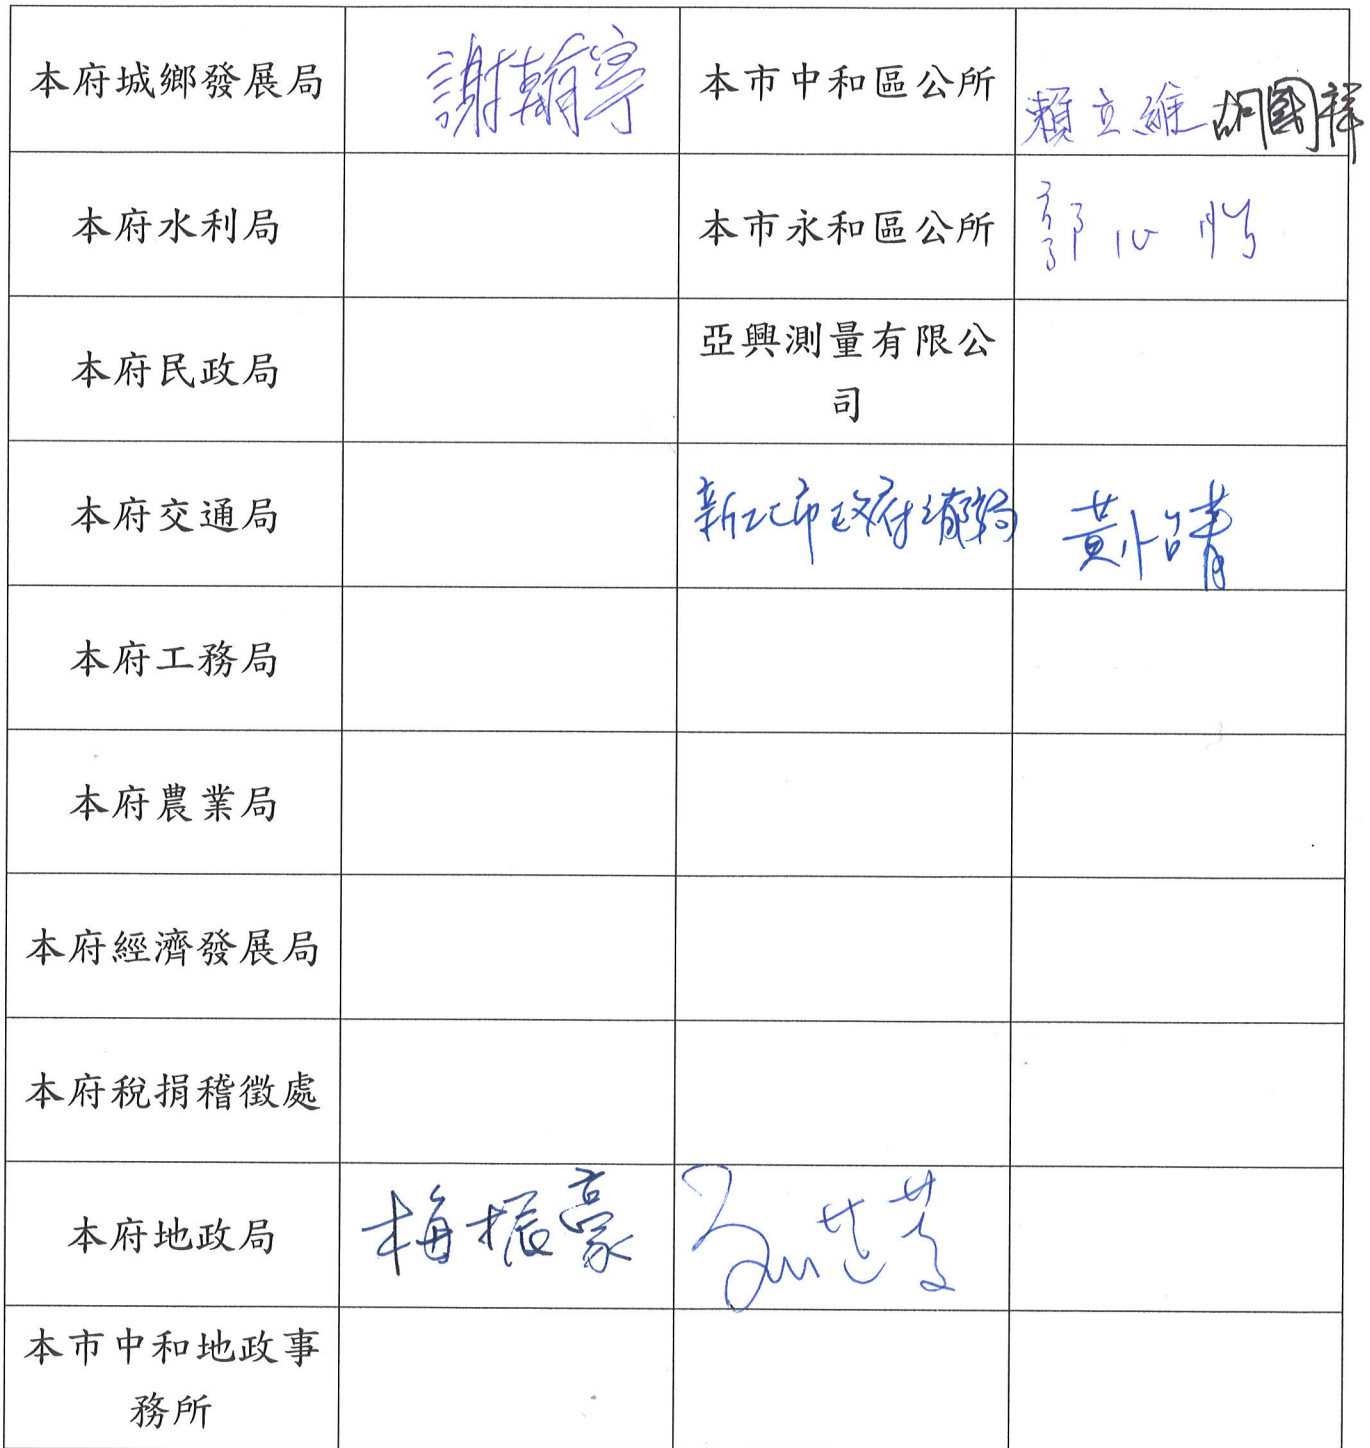 本府城鄉發展局 謝翰寧 本市中和區公所 賴立維 胡國祥
本府水利局 本市永和區公所 郭心怡
本府民政局 亞興測量有限公
司
本府交通局 新北市政府消防局
本府工務局
本府農業局
本府經濟發展局
本府稅捐稽徵處
本府地政局 梅振豪
本市中和地政事
務所